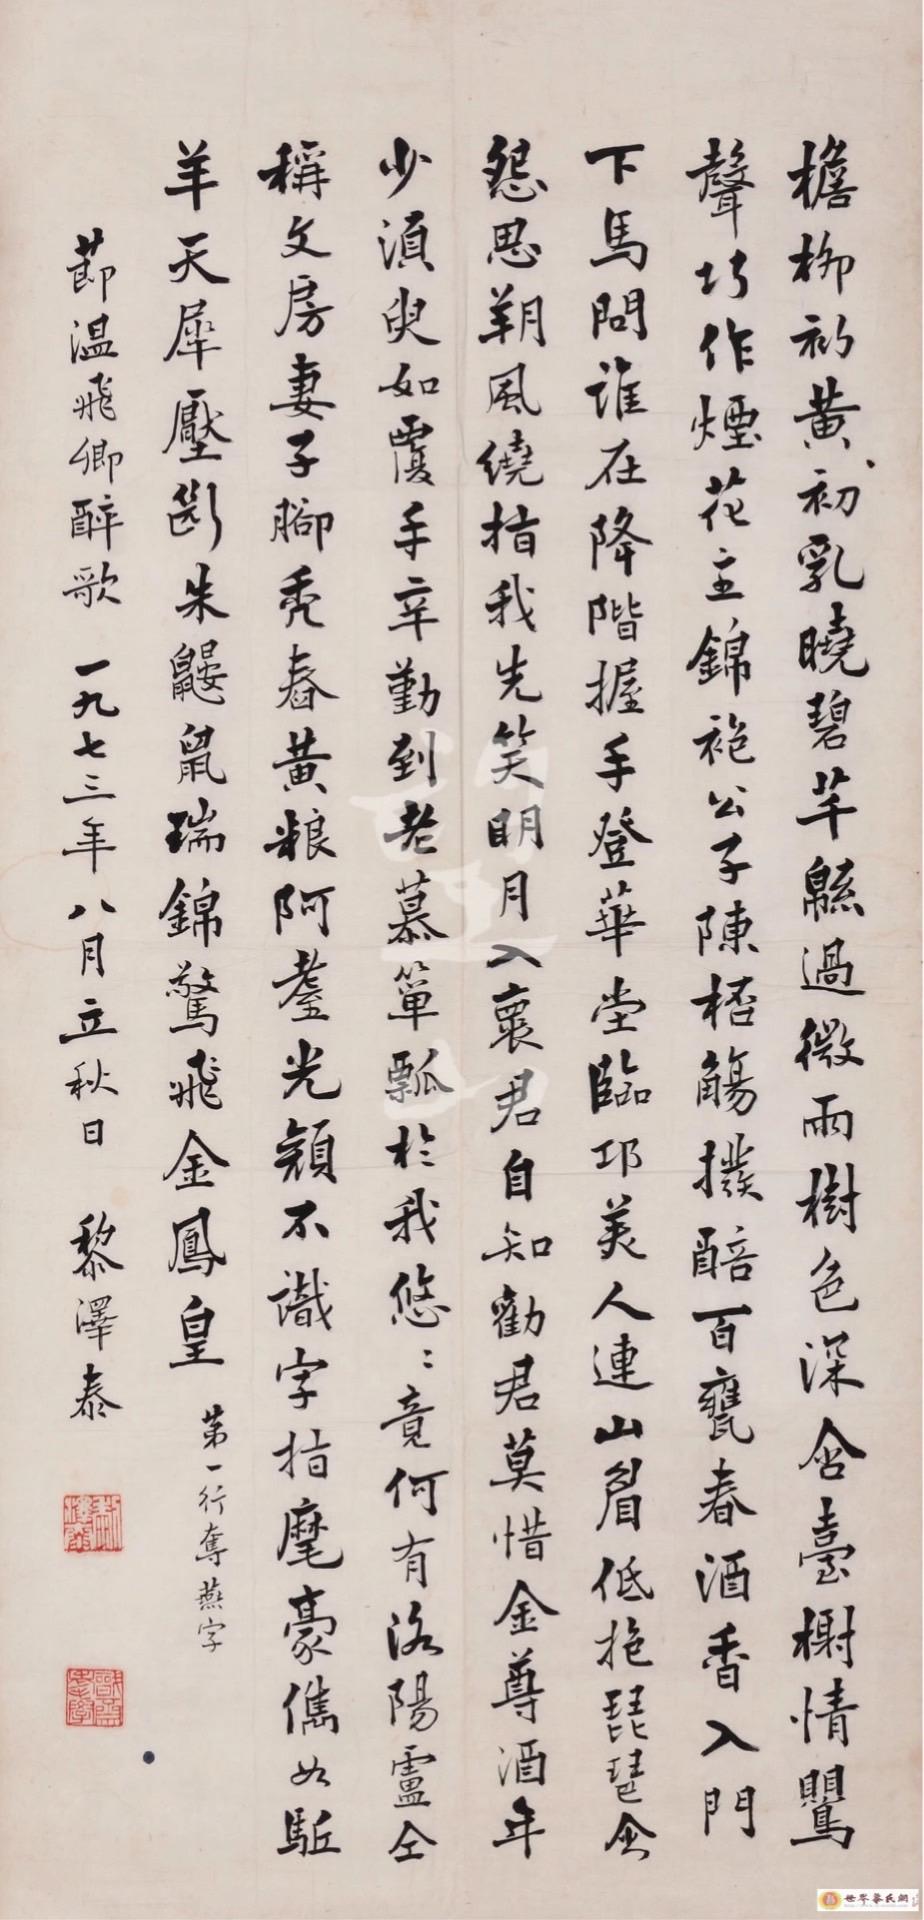 檐柳初黃初乳曉碧芊緜過微雨樹色深含臺榭情鸎
聲巧作煙花主錦袍公子陳桮觴撥醅百甕春酒香入門
下馬問誰在降階握手登華堂臨邛美人連山眉低抱琵琶含
怨思朔風繞指我先笑明月入褱君自知勸君莫惜金尊酒年
少須臾如覆手辛勤到老慕簞瓢於我悠〻竟何有洛陽盧仝
稱文房妻子腳禿舂黃粮阿耋光顏不識字指麾豪儁如駈
羊天犀壓斷朱鼹鼠瑞錦驚飛金鳳皇
第一行奪燕字
節溫飛卿醉歌 一九七三年八月立秋日 黎澤泰
世界華氏網